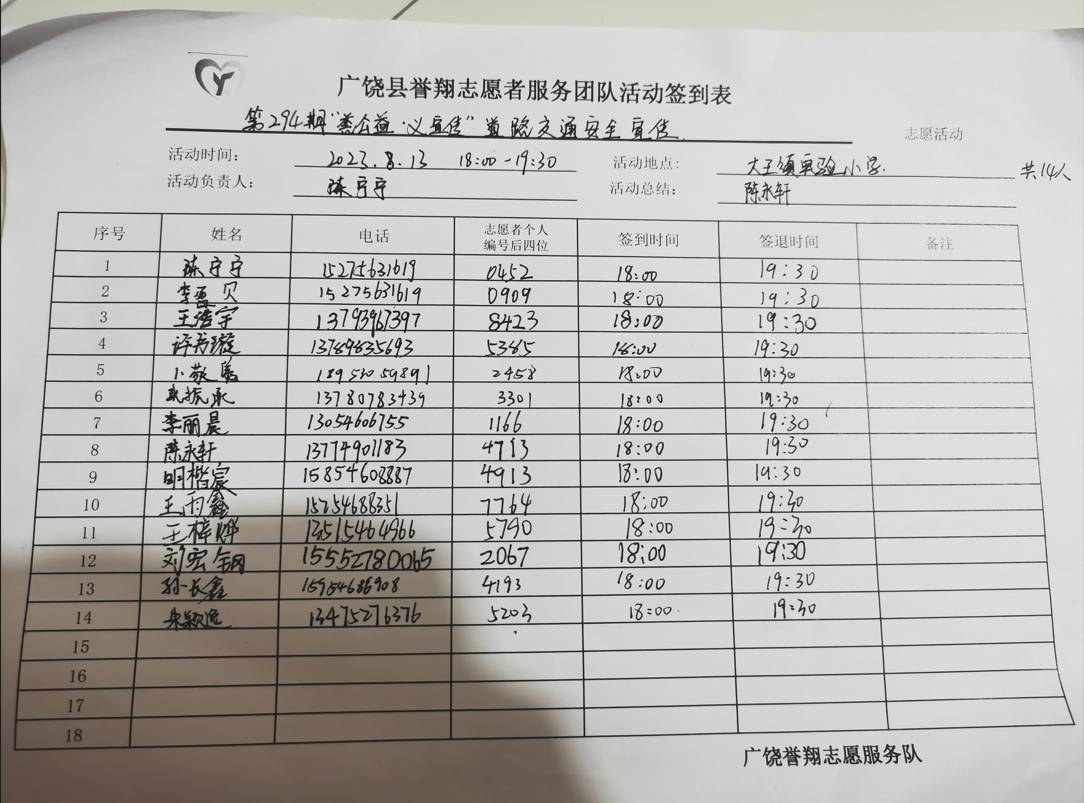 广饶县誉翔志愿者服务团队活动签到表
第294期"

道路交通安全宣传 志愿活动
活动时间: 2023.8.13 18:00-19:30 活动地点: 大王镇实验小学. 共14人
活动负责人: 陈宁宁 活动总结: 陈永轩
序号 姓名 电话 志愿者个人编号后四位 签到时间 签退时间 备注
1 陈宁宁 15275631619 0452 18:00 19:30
2 李 贝 15275631619 0909 18:00 19:30
3 王浩宇 13793967397 8423 18:00 19:30
4 许芳璇 13789835693 5385 18:00 19:30
5 2458 18:00 19:30
6 13780783439 3301 18:00 19:30
7 李丽晨 13054606755 1166 18:00 19:30
8 陈永轩 13774901183 4713 18:00 19:30
9 明楷宸 15854608887 4913 18:00 19:30
10 王雨鑫 15254688351 7764 18:00 19:30
11 王梓烨 13515464966 5790 18:00 19:30
12 刘宏钢 15552780065 2067 18:00 19:30
13 孙长鑫 15954686908 4193 18:00 19:30
14 13475276376 5203 18:00 19:30
15
16
17
18
广饶誉翔志愿服务队